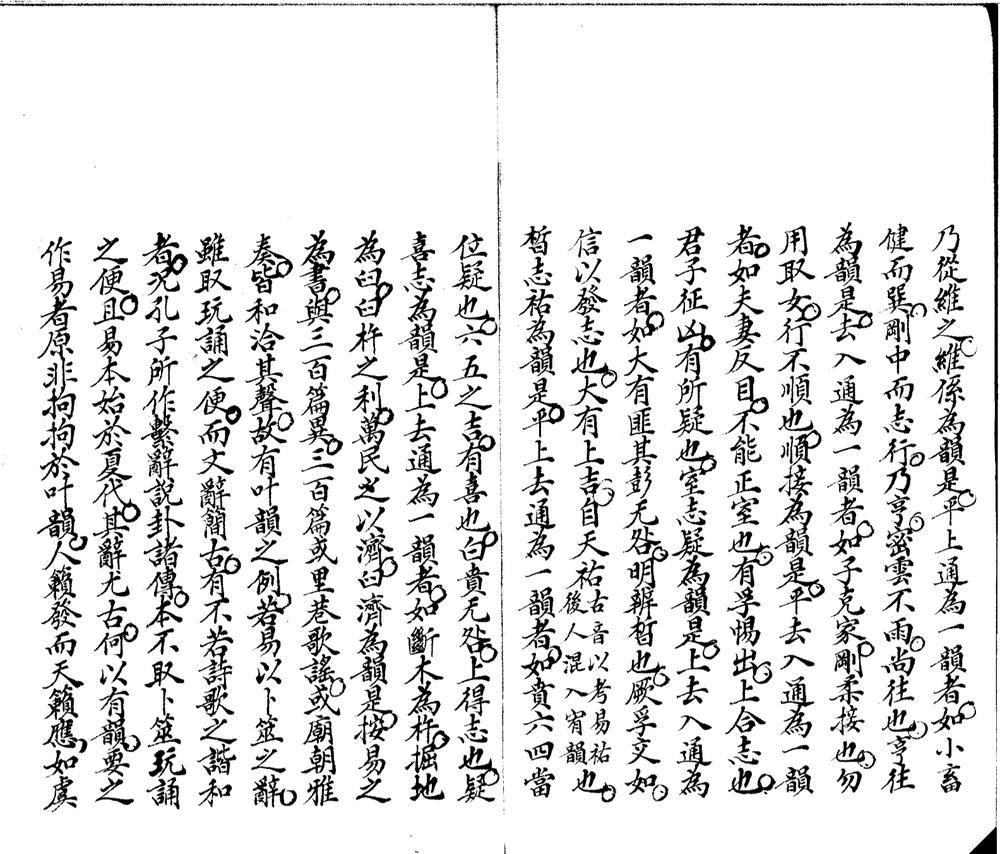 乃從維之維係為韻是平上通為一韻者如小畜
健而巽剛中而志行乃亨密雲不雨尚往也亨往
為韻是去入通為一韻者如子克家剛柔接也勿
用取女行不順也順接為韻是平去入通為一韻
者如夫妻反目不能正室也有孚惕出上合志也
君子征凶有所疑也室志疑為韻是上去入通為
一韻者如大有匪其彭无咎明辨晢也厥孚交如
信以發志也大有上吉自天祐古音以考易祐後人混入宥韻也
晢志祐為韻是平上去通為一韻者如賁六四當
位疑也六五之吉有喜也白賁无咎上得志也疑
喜志為韻是上去通為一韻者如斷木為杵掘地
為臼臼杵之利萬民之以濟臼濟為韻是按易之
為書與三百篇異三百篇或里巷歌謠或廟朝雅
奏皆和洽其聲故有叶韻之例若易以卜筮之辭
雖取玩誦之便而文辭簡古有不若詩歌之諧和
者況孔子所作繫辭說卦諸傳本不取卜筮玩誦
之便且易本始於夏代其辭尤古何以有韻要之
作易者原非拘拘於叶韻人籟發而天籟應如虞